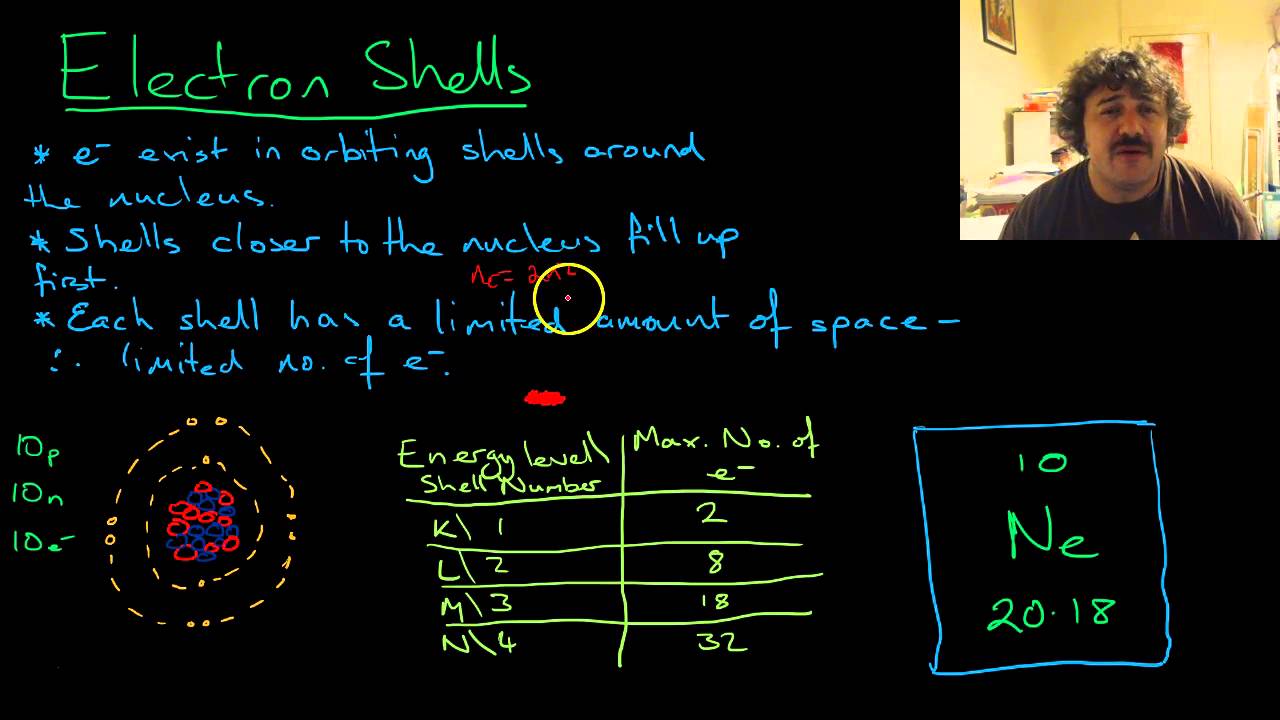 Electron Shells
* e⁻ exist in orbiting shells around
the nucleus.
* Shells closer to the nucleus fill up
first.
* Each shell has a limited amount of space –
∴ limited no. of e⁻.
10p
10n
10e⁻
Energy level\ Max. No. of
Shell Number e⁻
K\ 1 2
L\ 2 8
M\ 3 18
N\ 4 32
10
Ne
20.18